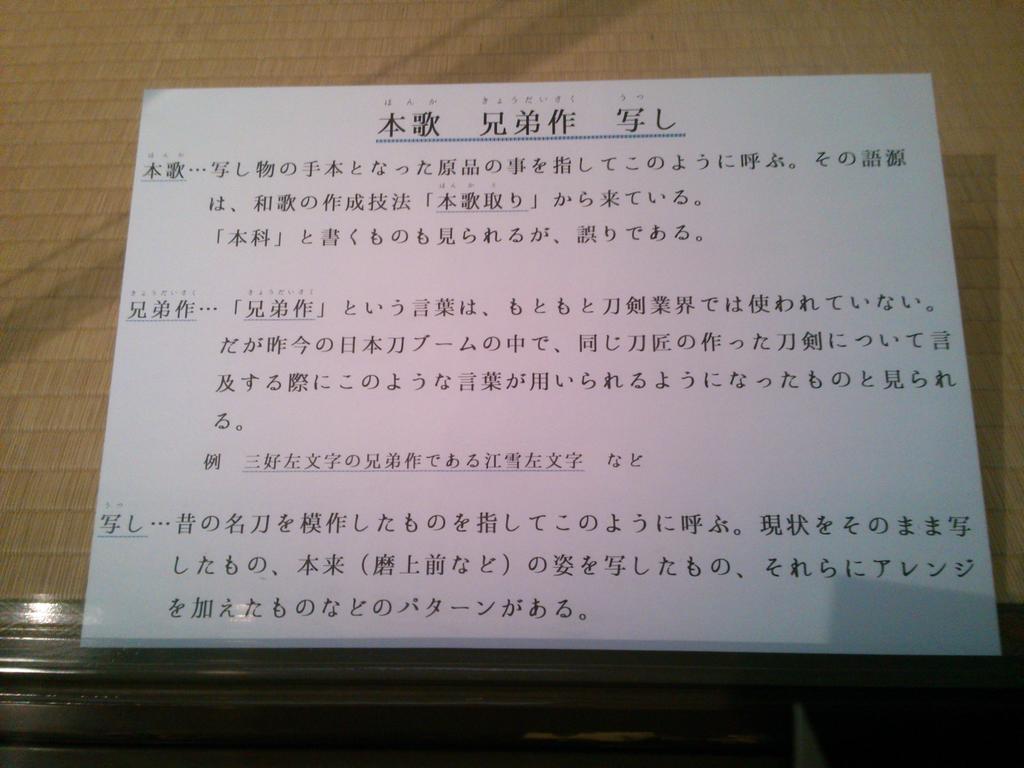 本歌　兄弟作　写し
本歌…写し物の手本となった原品の事を指してこのように呼ぶ。その語源
は、和歌の作成技法「本歌取り」から来ている。
「本科」と書くものも見られるが、誤りである。
兄弟作…「兄弟作」という言葉は、もともと刀剣業界では使われていない。
だが昨今の日本刀ブームの中で、同じ刀匠の作った刀剣について言
及する際にこのような言葉が用いられるようになったものと見られ
る。
例　三好左文字の兄弟作である江雪左文字　など
写し…昔の名刀を模作したものを指してこのように呼ぶ。現状をそのまま写
したもの、本来（磨上前など）の姿を写したもの、それらにアレンジ
を加えたものなどのパターンがある。